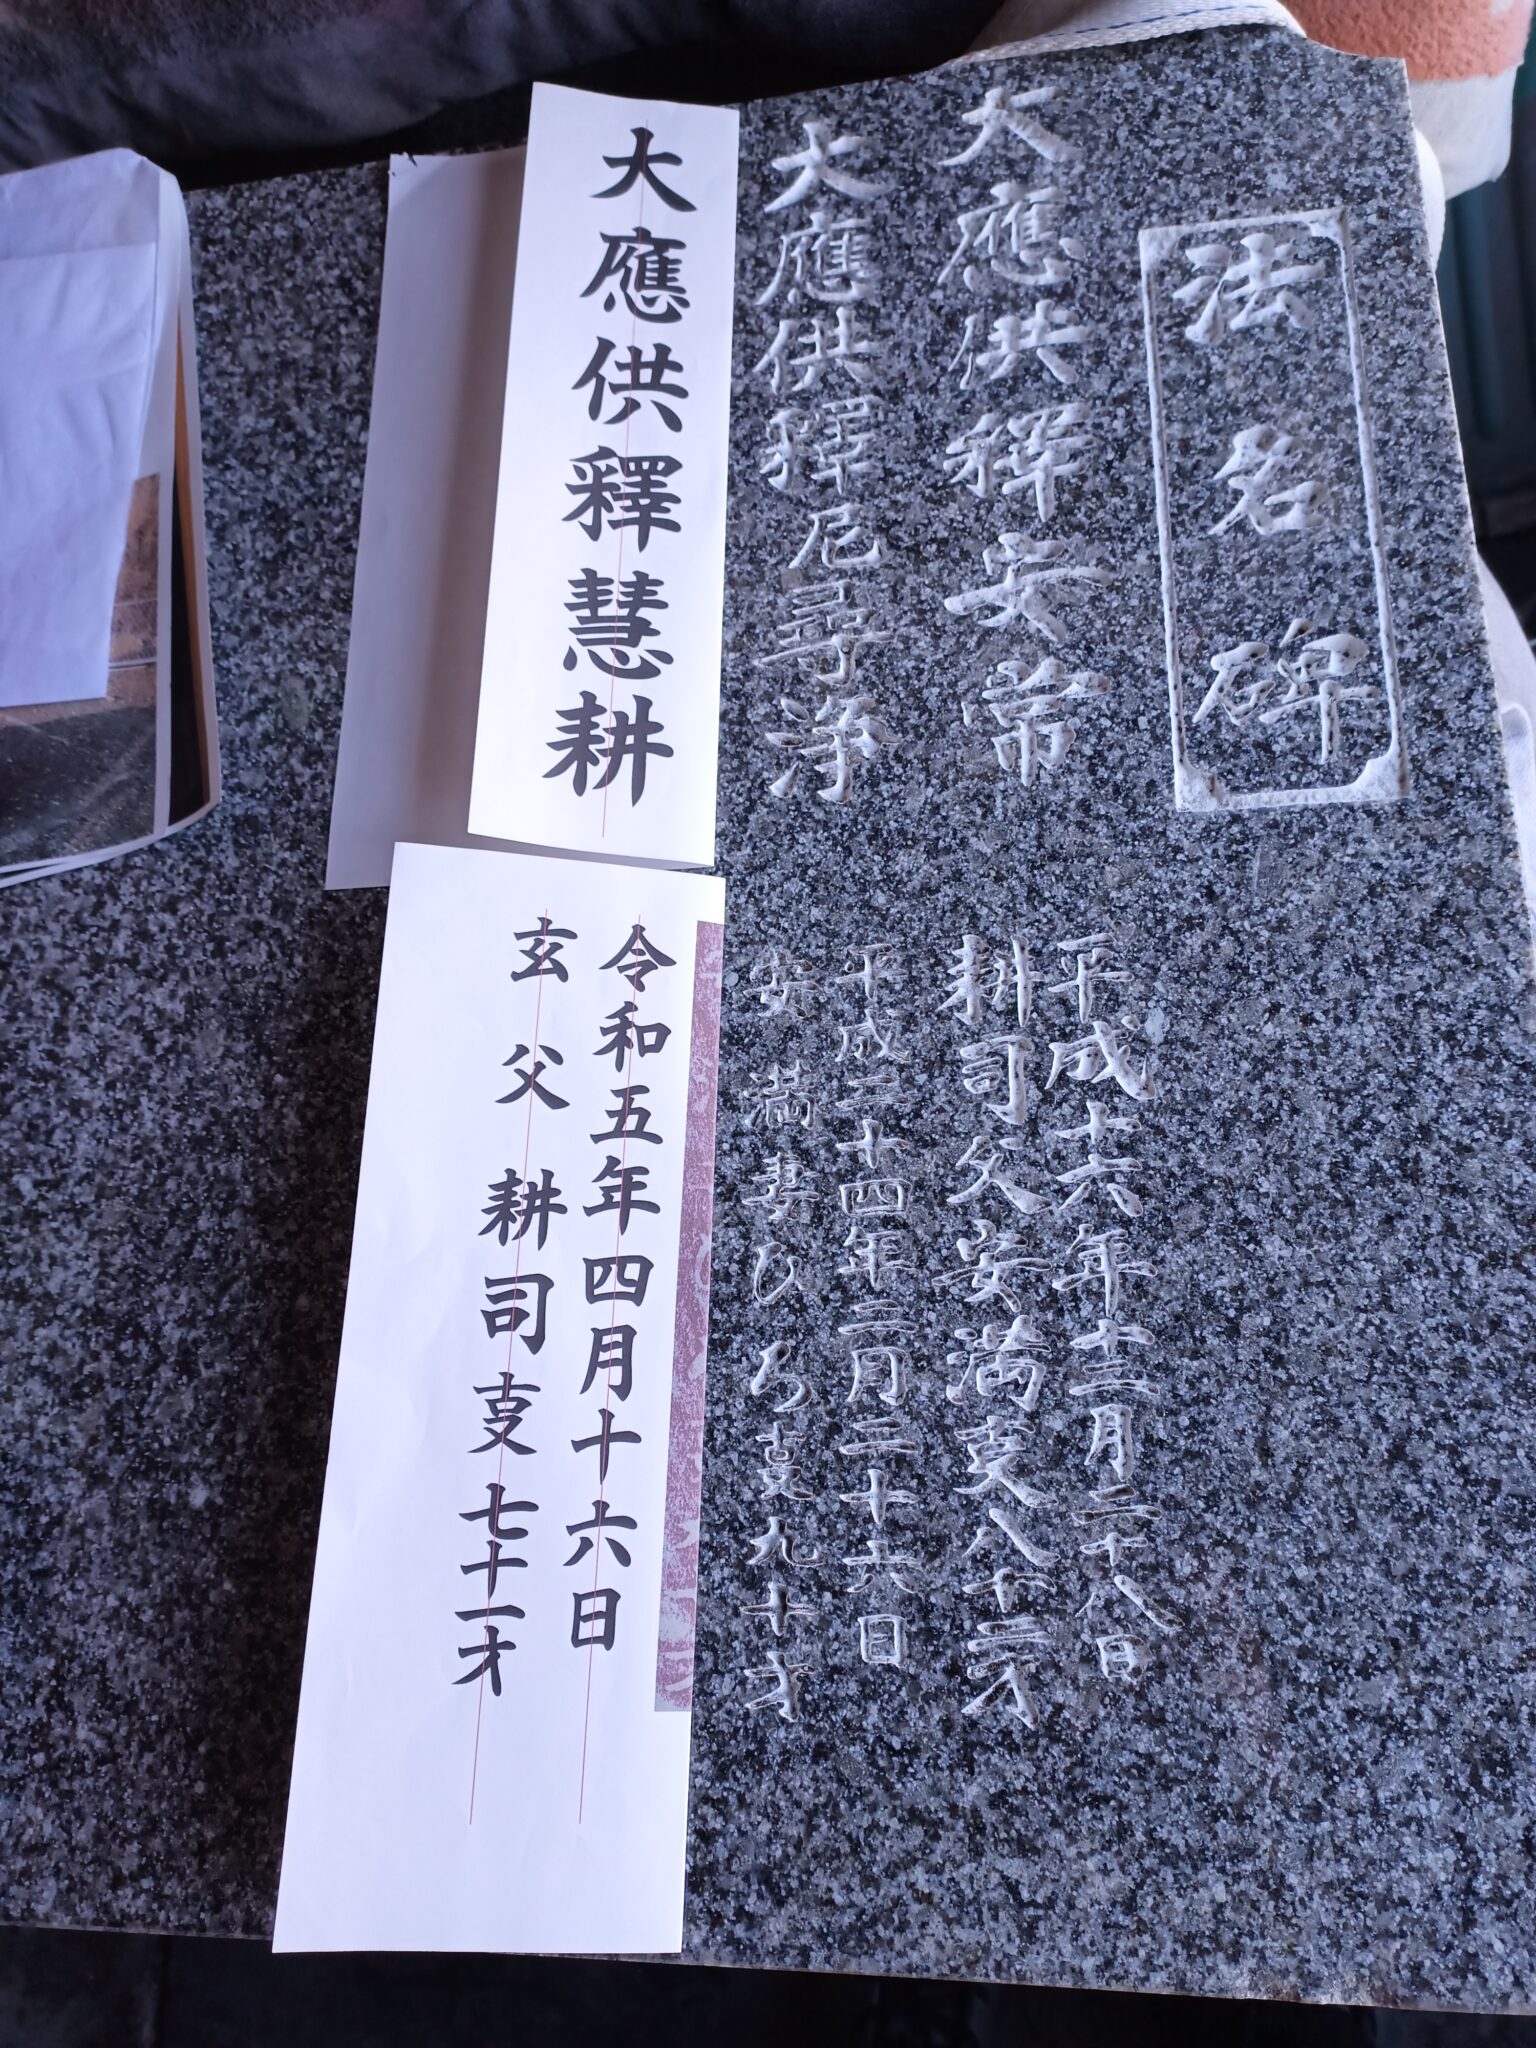 法名碑
大應供釋安常
平成十六年十二月二十八日
耕司父安満叓八十二才
大應供釋尼尋浄
平成二十四年二月二十六日
安満妻ひろ叓九十才
大應供釋慧耕
令和五年四月十六日
玄父 耕司叓 七十一才